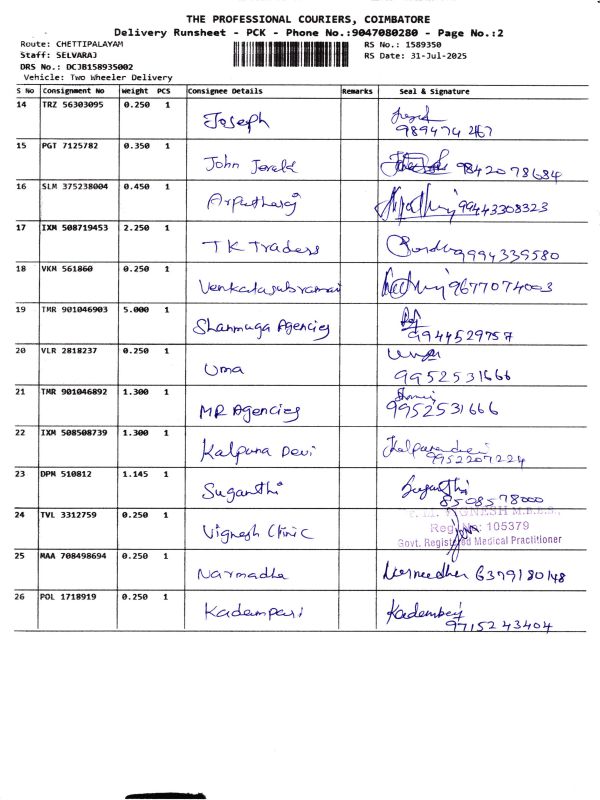 THE PROFESSIONAL COURIERS, COIMBATORE
Delivery Runsheet - PCK - Phone No.:9047080280 - Page No.:2
Route: CHETTIPALAYAM RS No.: 1589350
Staff: SELVARAJ RS Date: 31-Jul-2025
DRS No.: DCJB158935002
Vehicle: Two Wheeler Delivery
S No Consignment No Weight PCS Consignee Details Remarks Seal & Signature
14 TRZ 56303095 0.250 1
Joseph
989474 267
15 PGT 7125782 0.350 1
John Jerald 9842078684
16 SLM 375238004 0.450 1
Arputharaj 99443308323
17 IXM 508719453 2.250 1
TK Traders 9994339580
18 VKM 561860 0.250 1
Venkatasubramani 9677074003
19 TMR 901046903 5.000 1
Shanmuga Agencies
9944529757
20 VLR 2818237 0.250 1
Uma
9952531666
21 TMR 901046892 1.300 1
MR Agencies 9952531666
22 IXM 508508739 1.300 1
Kalpana Devi Kalpanadevi
9952207224
23 DPM 510812 1.145 1
Suganthi Suganthi
8508578000
24 TVL 3312759 0.250 1
VIGNESH M.B.B.S.,
Reg. No: 105379
Vignesh Clinic
Govt. Registered Medical Practitioner
25 MAA 708498694 0.250 1
Narmadha 6379180148
26 POL 1718919 0.250 1
Kadampari
9715243404